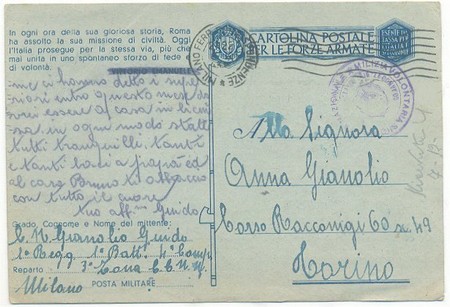 In ogni ora della sua gloriosa storia, Roma
ha assolto la sua missione di civiltà. Oggi
l'Italia prosegue per la stessa via, più che
mai unita in uno spontaneo sforzo di fede e
di volontà.
VITTORIO EMANUELE
CARTOLINA POSTALE
PER LE FORZE ARMATE
MILANO FERR
me ci hanno detto i supe-
riori entro questo mese do
vrei essere a casa in licen
sa in ogni modo state
tutti tranquilli tante
e tanti baci a papà ed
al caro Bruno ti abbraccio
con tutto il cuore
tuo aff Guido
Grado, Cognome e Nome del mittente:
C. N. Gianolio Guido
1º Regg. 1º Batt. 4ª Comp
Reparto
3ª Zona
Milano
POSTA MILITARE
Alla Signora
Anna Gianolio
Corso Racconigi 60 49
Torino